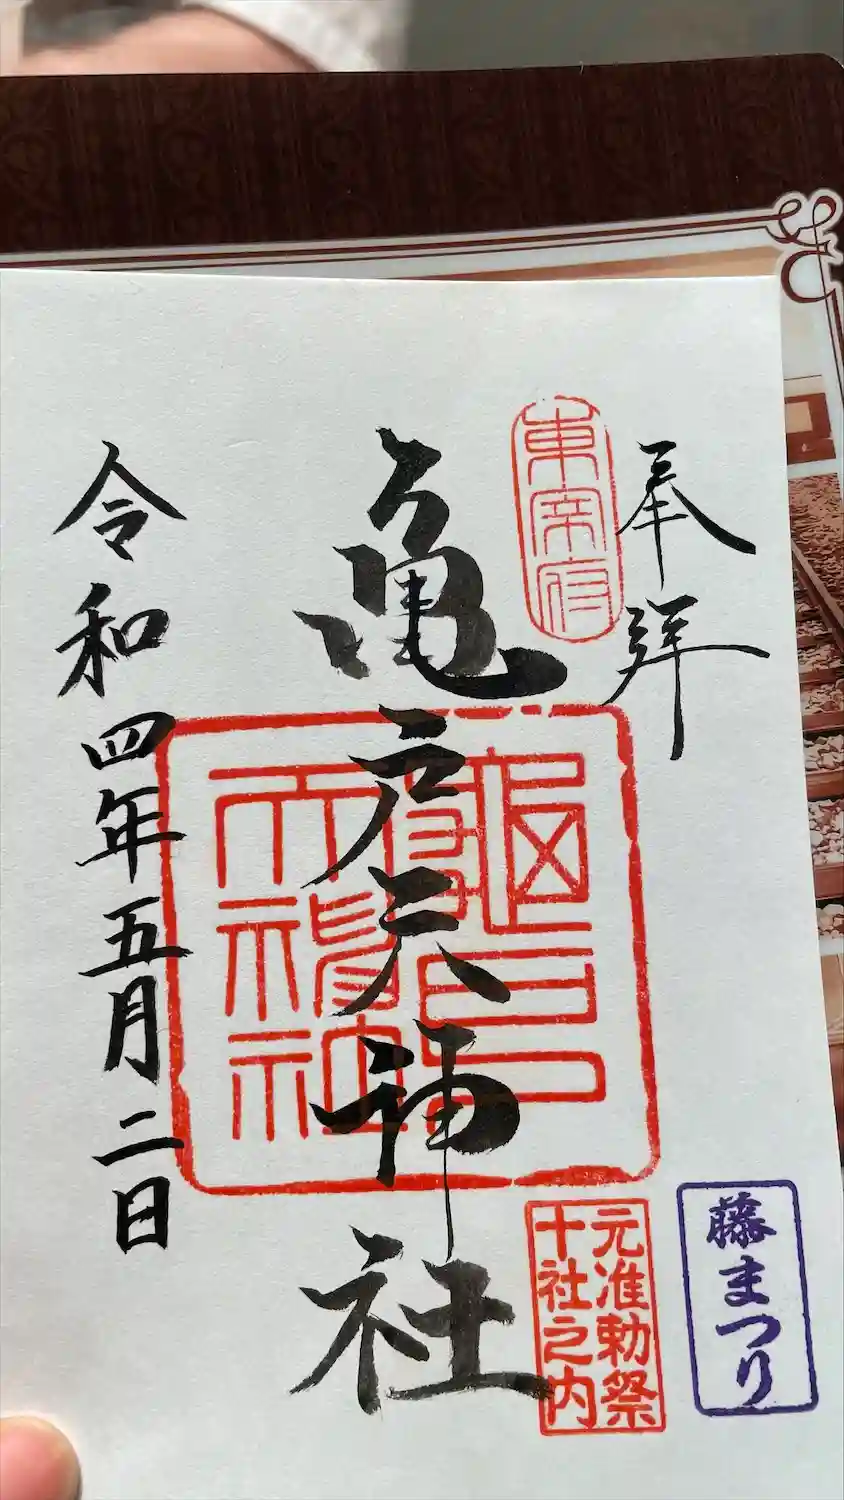 奉拝
東宰府
亀戸天神社
龜戸天神社
元准勅祭
十社之内
藤まつり
令和四年五月二日